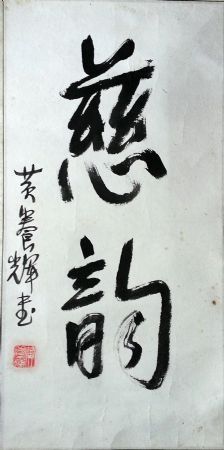 慈韵
黄养辉书